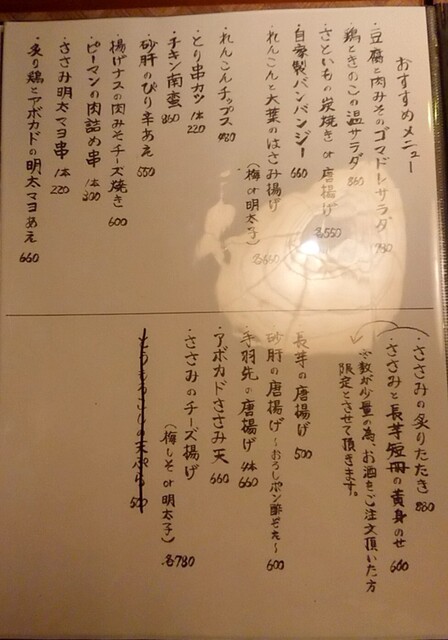 おすすめメニュー
・豆腐と肉みそのゴマドレサラダ 780
・鶏ときのこの温サラダ 860
・さといもの炭焼き or 唐揚げ 各550
・自家製バンバンジー 660
・れんこんと大葉のはさみ揚げ
(梅 or 明太子) 各660
・れんこんチップス 480
・とり串カツ 1本 220
・チキン南蛮 860
・砂肝のぴり辛あえ 550
・揚げナスの肉みそチーズ焼き 600
・ピーマンの肉詰め串 1本 300
・ささみ明太マヨ串 1本 220
・炙り鶏とアボカドの明太マヨあえ 660
・ささみの炙りたたき 880
・ささみと長芋短冊の黄身のせ 660
☆数が少量の為、お酒をご注文頂いた方
限定とさせて頂きます。
・長芋の唐揚げ 500
・砂肝の唐揚げ ~おろしポン酢ぞえ~ 600
・手羽先の唐揚げ 4本 660
・アボカドささみ天 660
・ささみのチーズ揚げ
(梅しそ or 明太子) 各780
・とうもろこしの天ぷら 500